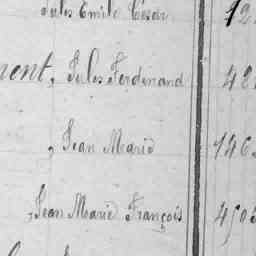 Jules Emile Cesar 12
ment, Jules Ferdinand 48
, Jean Marie 146
, Jean Marie François 450